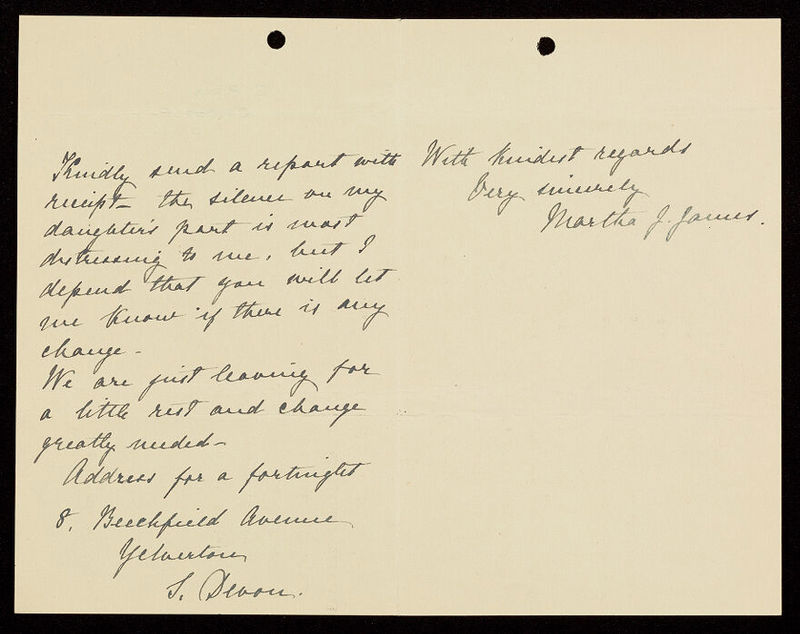 Kindly send a report with
receipt - the silence on my
daughter's part is most
distressing to me, but I
depend that you will let
me know if there is any
change -
We are just leaving for
a little rest and change
greatly needed -
Address for a fortnight
8, Beechfield Avenue
Yelverton
S. Devon.
With kindest regards
Very sincerely
Martha J. James.